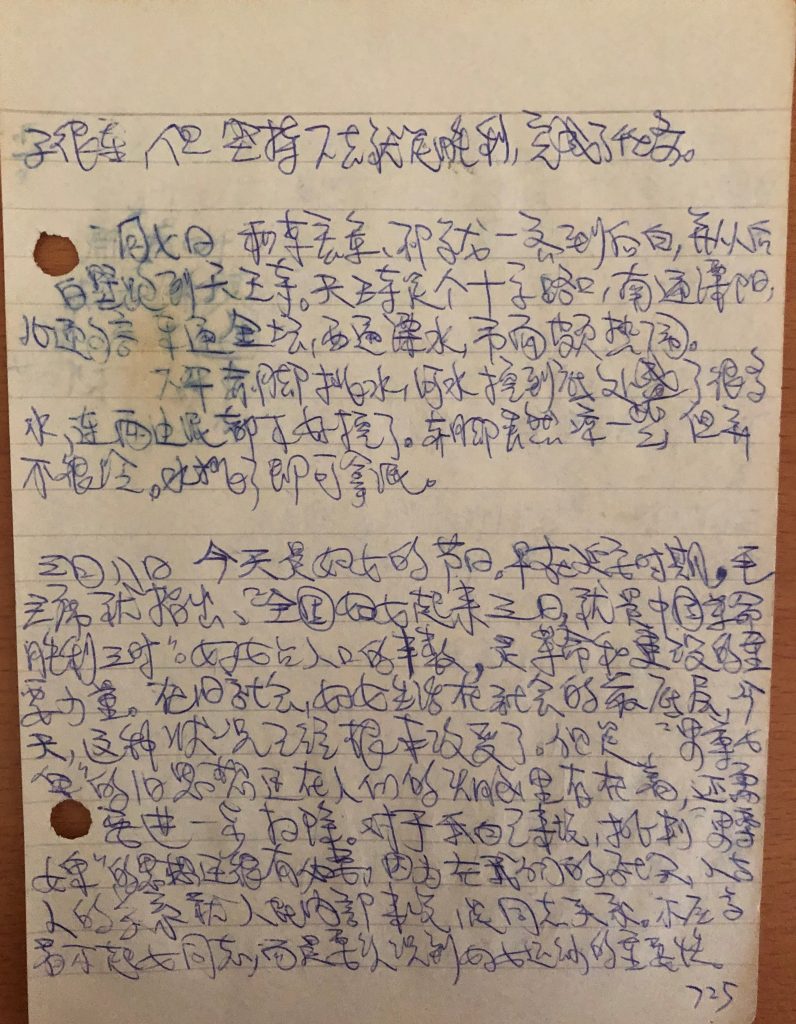 子很重,但坚持下去就是胜利,完成了任务。
三月七日 和李宏章、邓子龙一名到后白,再从后
白坚跑到天王寺。天王寺是个十字路口,南通溧阳,
北通句容 東通金坛,西通溧水,市面颇热闹。
下午 赤脚挑水,河水挖到底处 了很多
水,连两边泥都不好挖了。赤脚虽然凉一些,但并
不很冷。水挑了即可拿泥。
三月八日 今天是妇女的节日。早在延安时期,毛
主席就指出、“全国妇女起来之日,就是中国革命
胜利之时”。妇女占人口的半数,是革命和建设的重
要力量。在旧社会,妇女生活在社会的最底层,今
天,这种状况已经根本改变了。但是,“男尊女
卑”的旧思想还在人们的头脑里存在着,还需要
进一步扫除。对于我自己来说,批判“男尊
女卑”的思想还很有必要,因为在我们的社会,人与
人的关系就人民内部来说,是同志关系。不应当
看不起女同志,而是要认识到妇女运动的重要性。
725